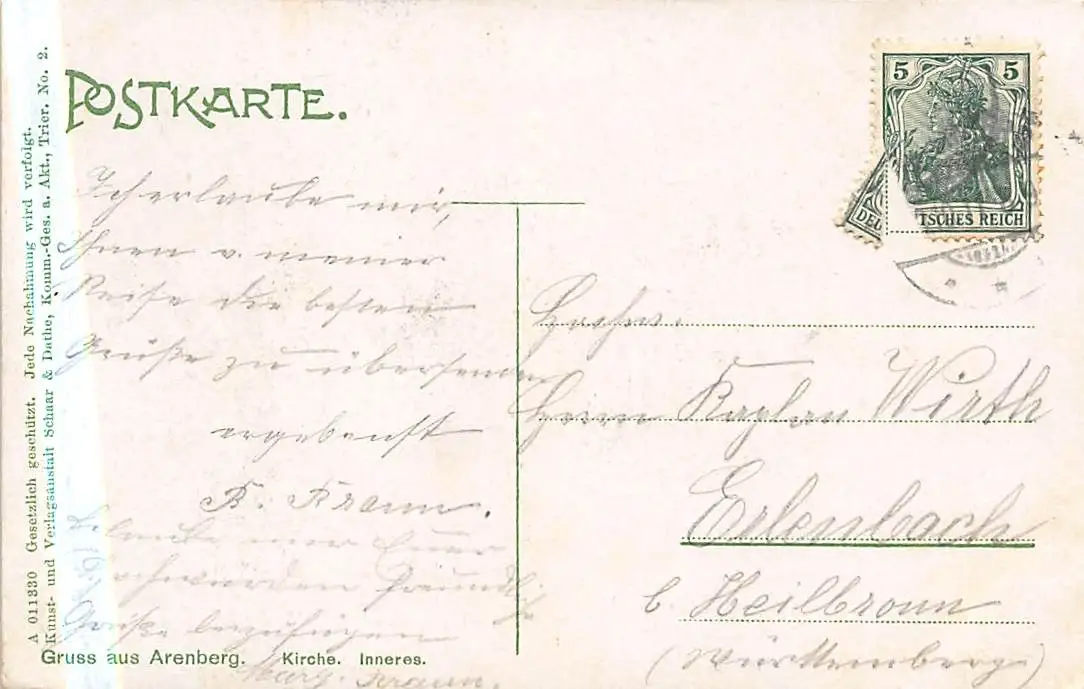 POSTKARTE.
A 011330 Gesetzlich geschützt. Jede Nachahmung wird verfolgt.
Kunst- und Verlagsanstalt Schaar & Dathe, Komm.-Ges. a. Akt., Trier. No. 2.
5 5
DEUTSCHES REICH
Ich erlaube mir,
Ihnen v. meiner
Reise die besten
Grüße zu übersenden
ergebenst
Erlaube mir Euer
Hochwürden freundl.
Grüße beizufügen
Hochw.
Herrn Kaplan Wirth
Erlenbach
b. Heilbronn
(Württemberg)
Gruss aus Arenberg. Kirche. Inneres.